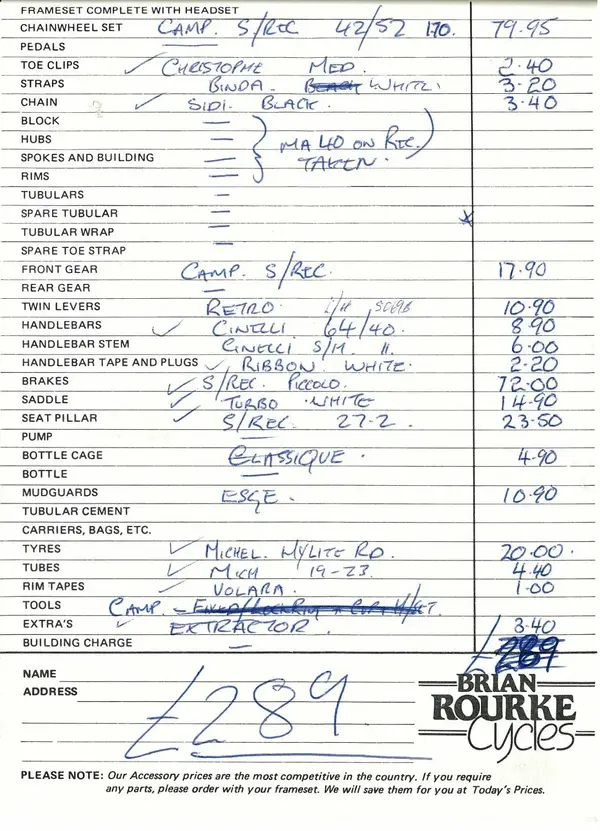 FRAMESET COMPLETE WITH HEADSET
CHAINWHEEL SET CAMP. S/REC 42/52 170. 79.95
PEDALS
TOE CLIPS ✓ CHRISTOPHE MED. 2.40
STRAPS BINDA. BLACK WHITE. 3.20
CHAIN ✓ SIDI. BLACK. 3.40
BLOCK —
HUBS — MA 40 ON REC.
SPOKES AND BUILDING — TAKEN.
RIMS —
TUBULARS —
SPARE TUBULAR —
TUBULAR WRAP —
SPARE TOE STRAP —
FRONT GEAR CAMP. S/REC. 17.90
REAR GEAR —
TWIN LEVERS RETRO. 10.90
HANDLEBARS ✓ CINELLI 64/40. 8.90
HANDLEBAR STEM CINELLI S/H. 11. 6.00
HANDLEBAR TAPE AND PLUGS ✓ RIBBON. WHITE. 2.20
BRAKES ✓ S/REC. PICCOLO. 72.00
SADDLE ✓ TURBO . WHITE 14.90
SEAT PILLAR ✓ S/REC. 27-2. 23.50
PUMP —
BOTTLE CAGE CLASSIQUE . 4.90
BOTTLE —
MUDGUARDS ESGE . 10.90
TUBULAR CEMENT
CARRIERS, BAGS, ETC.
TYRES ✓ MICHEL. HYLITE RD. 20.00.
TUBES ✓ MICH 19-23. 4.40
RIM TAPES ✓ VOLARA. 1.00
TOOLS CAMP.
EXTRA'S ✓ EXTRACTOR. 3.40
BUILDING CHARGE — £289
NAME
ADDRESS
£289
BRIAN
ROURKE
Cycles
PLEASE NOTE: Our Accessory prices are the most competitive in the country. If you require
any parts, please order with your frameset. We will save them for you at Today's Prices.